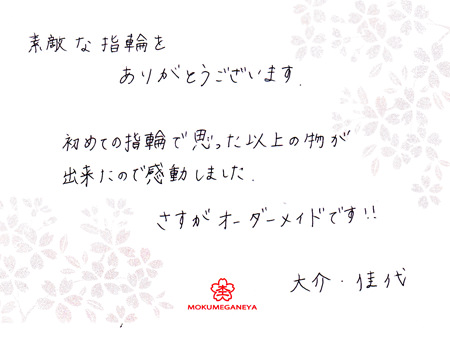 素敵な指輪を
ありがとうございます.
初めての指輪で思った以上の物が
出来たので感動しました.
さすがオーダーメイドです!!
大介・佳代
MOKUMEGANEYA